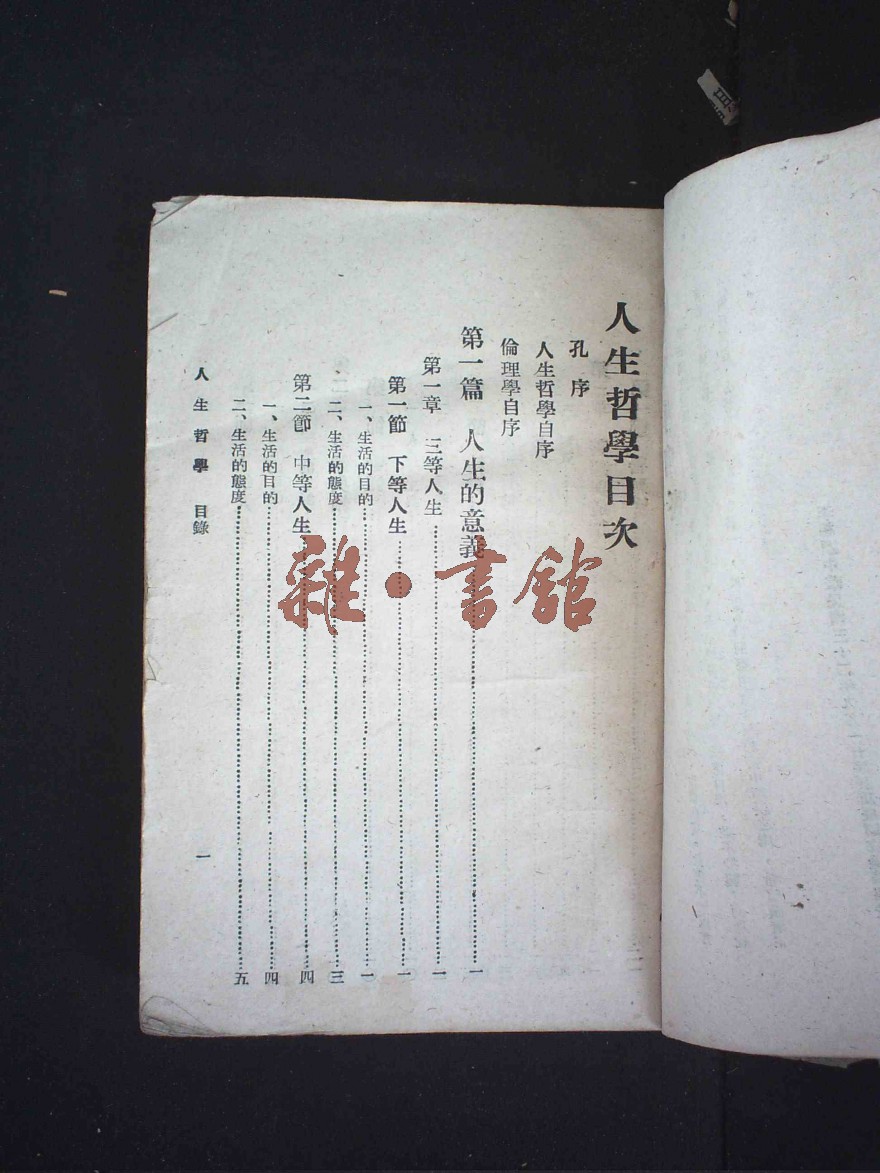 人生哲學目次
孔序
人生哲學自序
倫理學自序
第一篇 人生的意義……一
第一章 三等人生……一
第一節 下等人生……一
一、生活的目的……一
二、生活的態度……三
第二節 中等人生……四
一、生活的目的……四
二、生活的態度……五
人生哲學 目錄
一
雜·書館